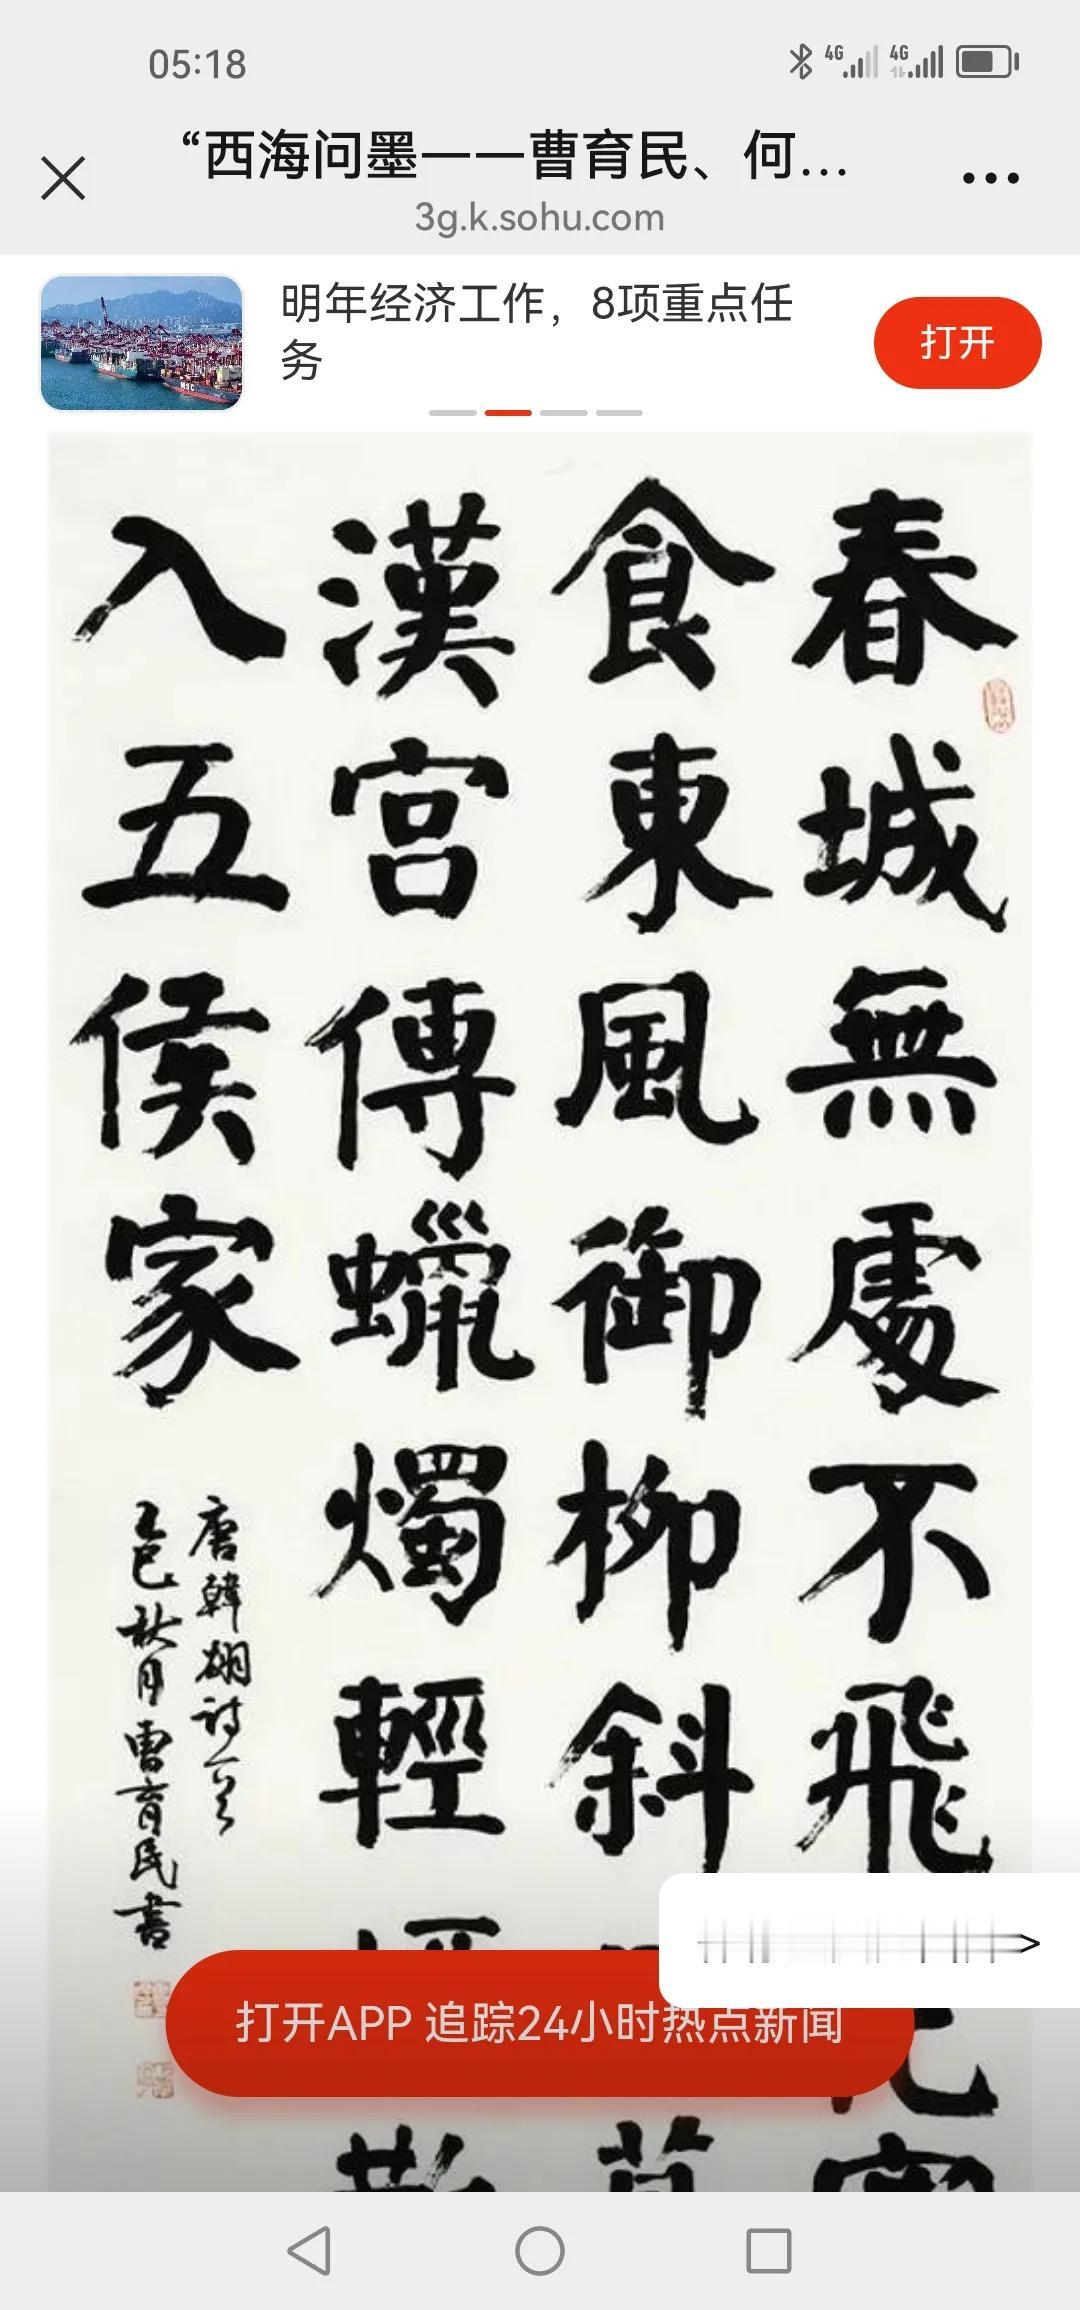 05:18
4G 4G
“西海问墨一一曹育民、何...
3g.k.sohu.com
明年经济工作，8项重点任
务
打开
春城無處不飛
食東風御柳斜
漢宮傳蠟燭輕
入五侯家
唐韓翃诗一首
乙巳秋月曹育民書
打开APP 追踪24小时热点新闻